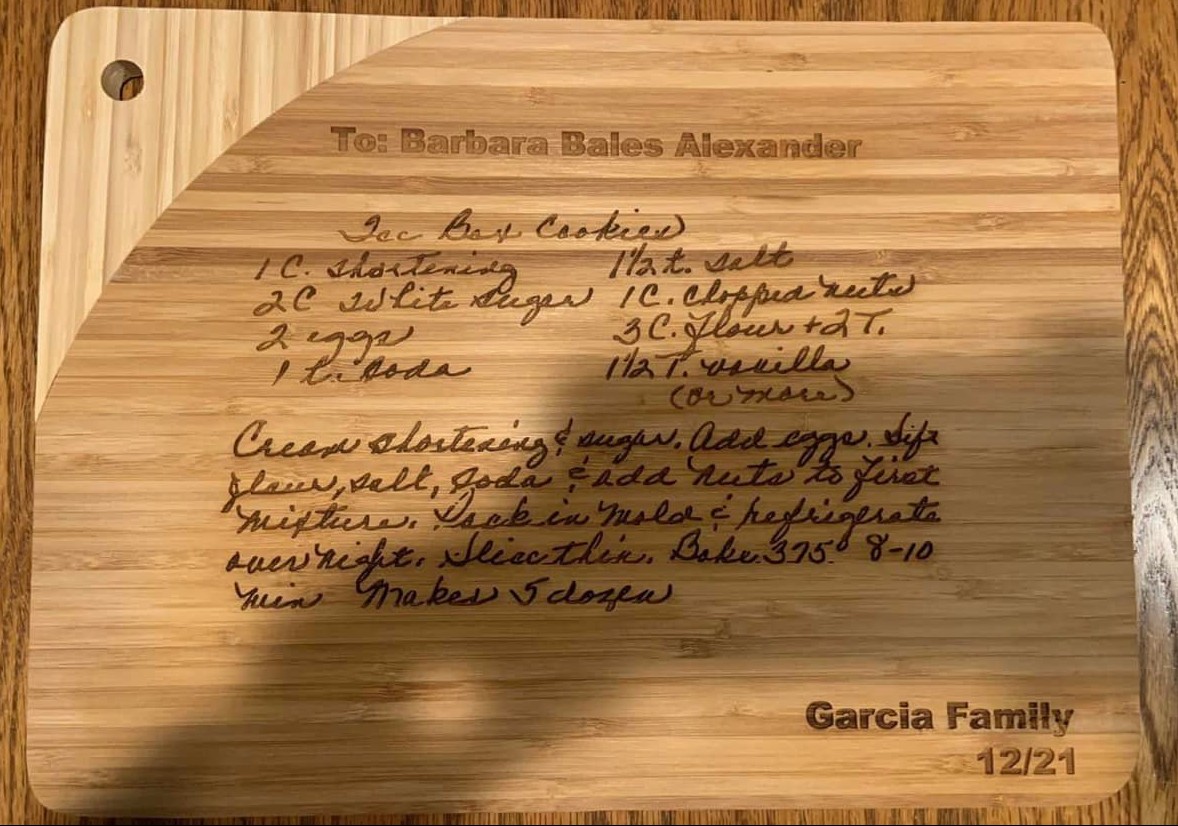 To: Barbara Bales Alexander
Ice Box Cookies
1 C. shortening
2 C White sugar
2 eggs
1 t. soda
1 1/2 t. salt
1 C. chopped nuts
3 C. flour + 2 T.
1 1/2 T. vanilla
(or more)
Cream shortening & sugar. Add eggs. Sift
flour, salt, soda & add nuts to first
mixture. Pack in mold & refrigerate
over night. Slice thin. Bake 375° 8-10
min Makes 5 dozen
Garcia Family
12/21